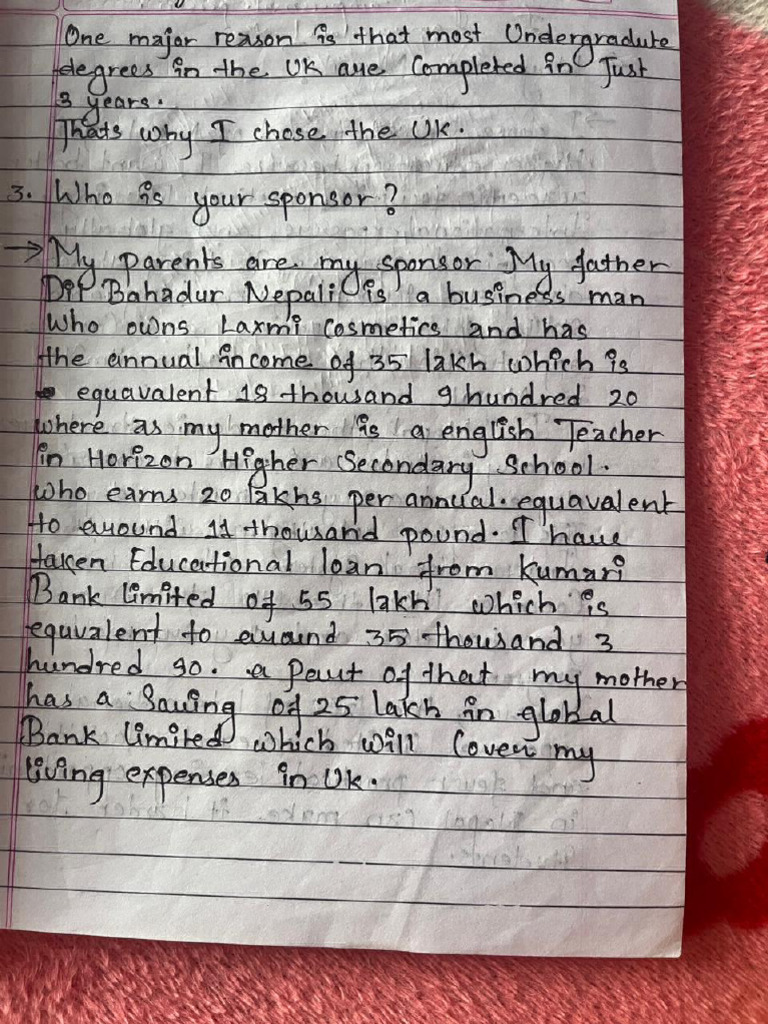 One major reason is that most Undergradute
degrees in the UK are Completed in Just
3 years.
Thats why I chose the UK.
3. Who is your sponsor?
→ My parents are my sponsor My father
Dip Bahadur Nepali is a business man
who owns Laxmi Cosmetics and has
the annual income of 35 lakh which is
equavalent 18 thousand 9 hundred 20
where as my mother is a english Teacher
in Horizon Higher Secondary School.
who earns 20 lakhs per annual. equavalent
to around 11 thousand pound. I have
taken Educational loan from Kumari
Bank limited of 55 lakh which is
equvalent to around 35 thousand 3
hundred 90. a part of that my mother
has a Saving of 25 lakh in global
Bank limited which will Cover my
living expenses in UK.